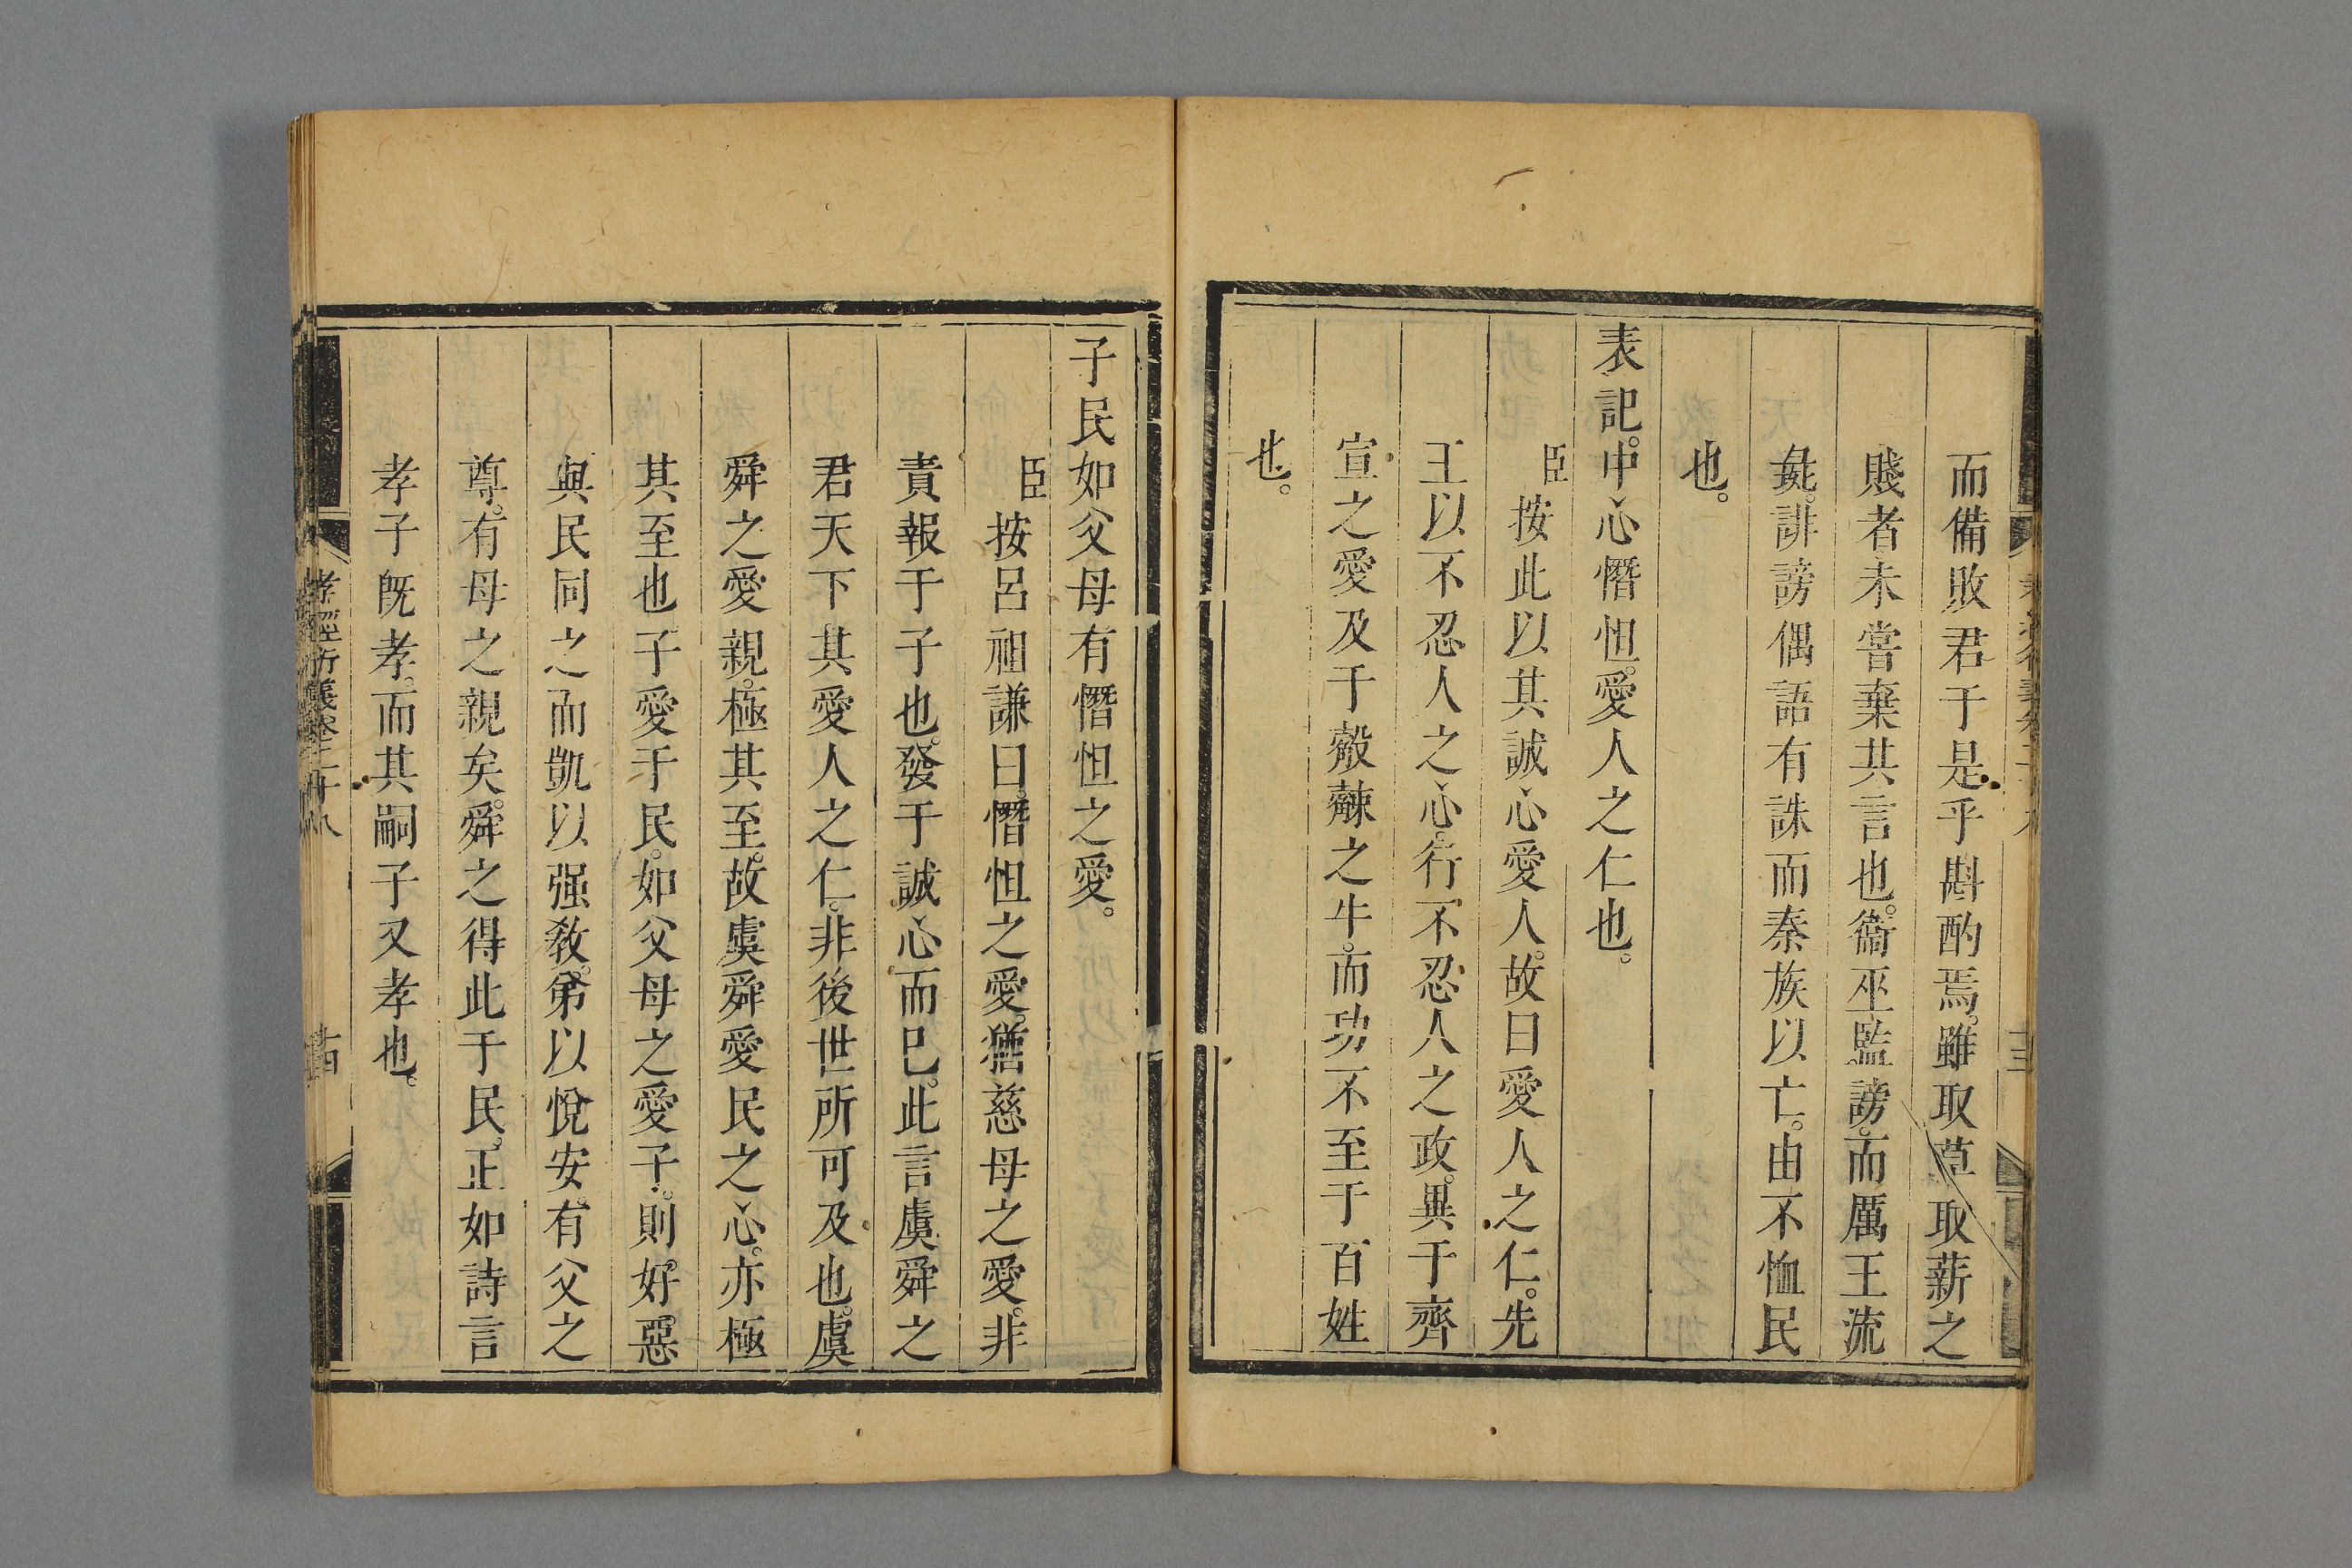 而備敗君于是乎斟酌焉。雖取草取薪之
賤者未嘗棄其言也。衞巫監謗。而厲王流
彘。誹謗偶語有誅而秦族以亡。由不恤民
也。
表記。中心憯怛。愛人之仁也。
臣按此以其誠心愛人。故曰愛人之仁。先
王以不忍人之心。行不忍人之政。異于齊
宣之愛及于觳觫之牛。而功不至于百姓
也。
子民如父母有憯怛之愛。
臣按呂祖謙曰。憯怛之愛。猶慈母之愛。非
責報于子也。發于誠心而已。此言虞舜之
君天下其愛人之仁。非後世所可及也。虞
舜之愛親。極其至。故虞舜愛民之心。亦極
其至也。子愛于民。如父母之愛子。則好惡
與民同之而凱以强敎。弟以悅安。有父之
尊。有母之親矣。舜之得此于民。正如詩言
孝子旣孝。而其嗣子又孝也。
孝經衍義卷二十八 十四